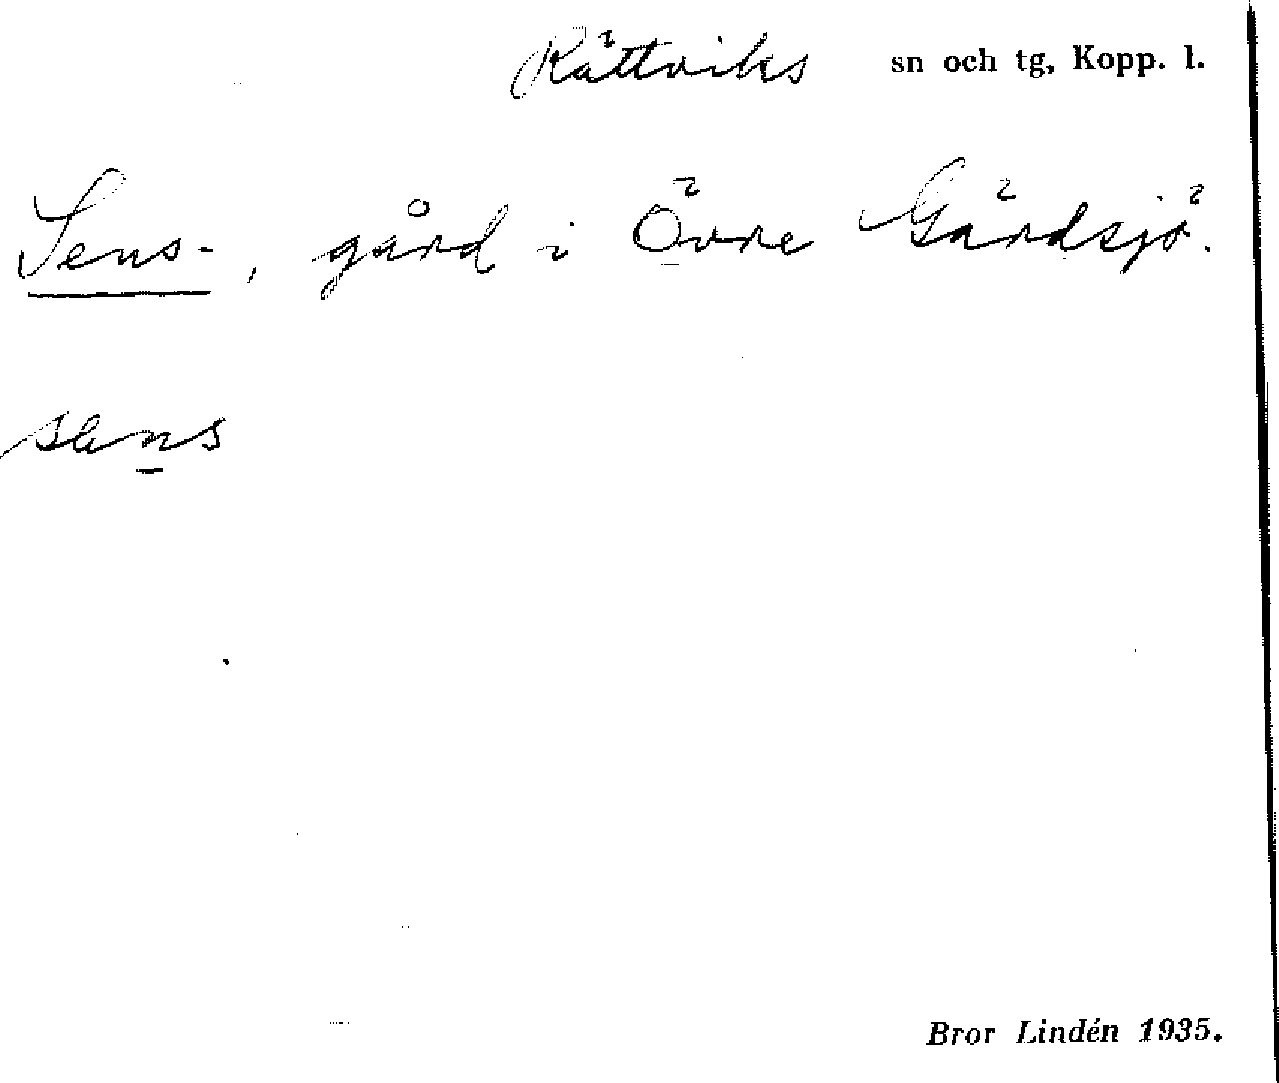 Rättviks sn och tg, Kopp. l.
Sens-, gård i Övre Gärdsjö.
sens
Bror Lindén 1935.